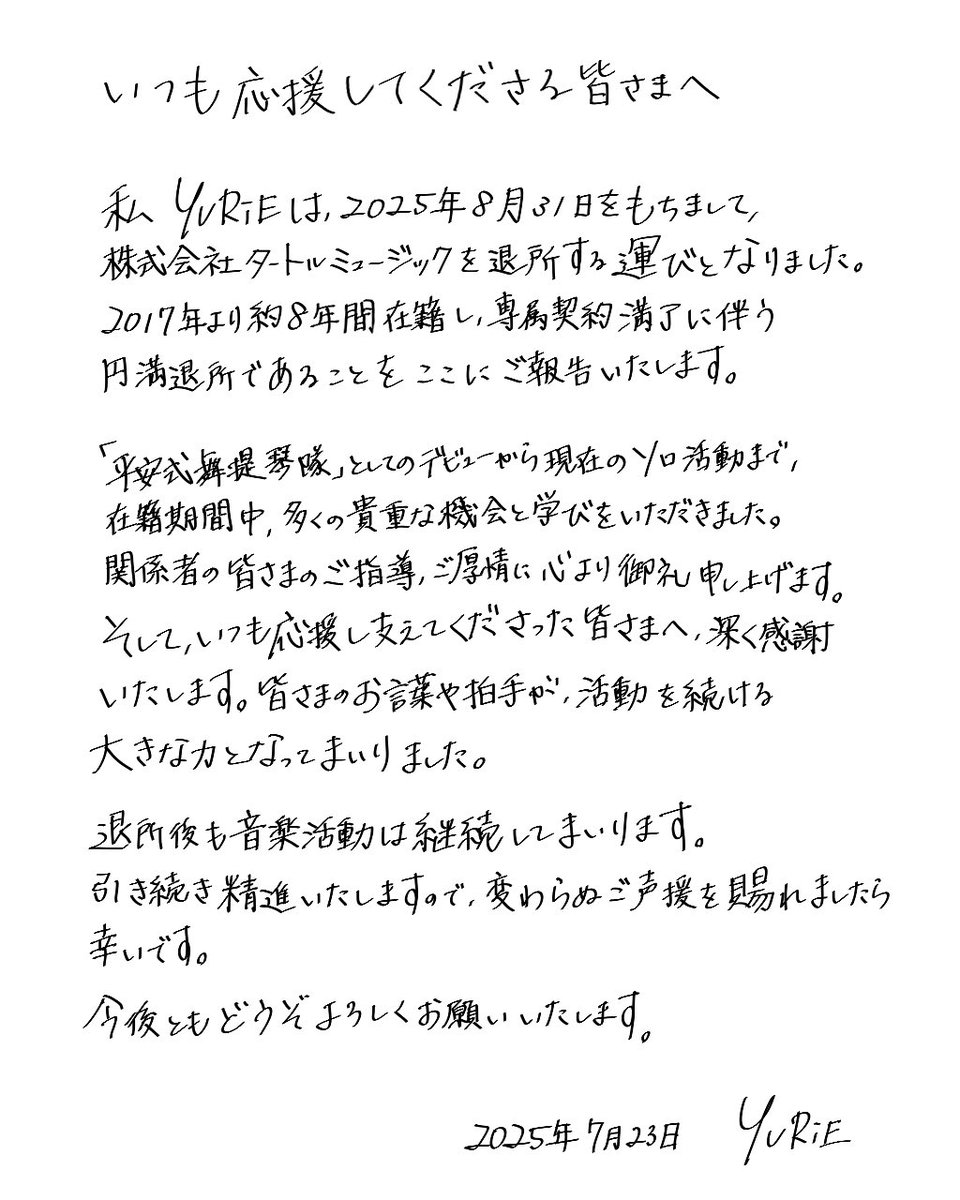 いつも応援してくださる皆さまへ
私 YURiEは,2025年8月31日をもちまして,
株式会社タートルミュージックを退所する運びとなりました。
2017年より約8年間在籍し,専属契約満了に伴う
円満退所であることをここにご報告いたします。
「平安式舞提琴隊」としてのデビューから現在のソロ活動まで,
在籍期間中,多くの貴重な機会と学びをいただきました。
関係者の皆さまのご指導,ご厚情に心より御礼申し上げます。
そして,いつも応援し支えてくださった皆さまへ,深く感謝
いたします。皆さまのお言葉や拍手が,活動を続ける
大きな力となってまいりました。
退所後も音楽活動は継続してまいります。
引き続き精進いたしますので,変わらぬご声援を賜れましたら
幸いです。
今後ともどうぞよろしくお願いいたします。
2025年7月23日 YURiE